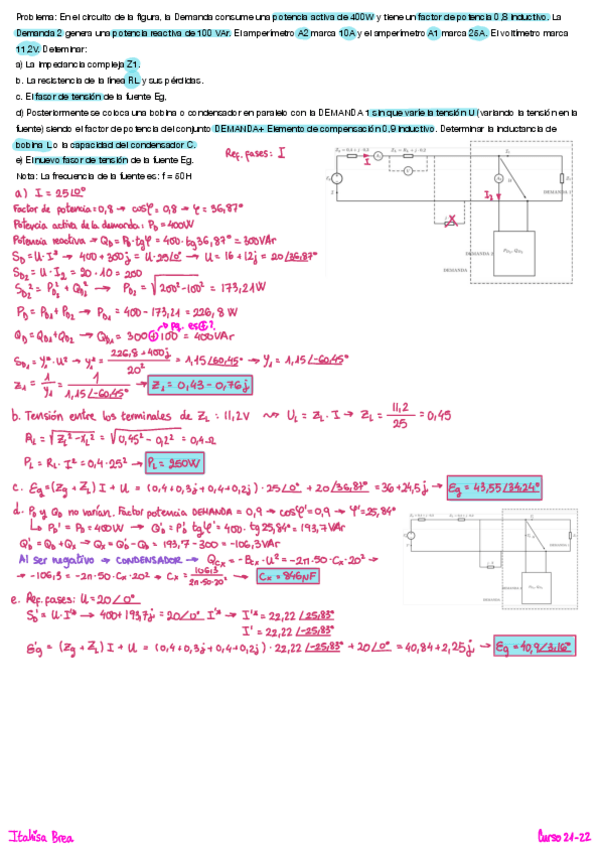 Problema: En el circuito de la figura, la Demanda consume una potencia activa de 400W y tiene un factor de potencia 0,8 inductivo. La
Demanda 2 genera una potencia reactiva de 100 VAr. El amperímetro A2 marca 10A y el amperímetro A1 marca 25A. El voltímetro marca
11,2V. Determinar:
a) La impedancia compleja Z1.
b. La resistencia de la línea RL y sus pérdidas.
c. El fasor de tensión de la fuente Eg.
d) Posteriormente se coloca una bobina o condensador en paralelo con la DEMANDA 1 sin que varíe la tensión U (variando la tensión en la
fuente) siendo el factor de potencia del conjunto DEMANDA+ Elemento de compensación 0,9 inductivo. Determinar la inductancia de
bobina L o la capacidad del condensador C.
e) El nuevo fasor de tensión de la fuente Eg.
Nota: La frecuencia de la fuente es: f = 50H
Ref. fases: I
a) I = 25∠0°
Factor de potencia = 0,8 → cosφ = 0,8 → φ = 36,87°
Potencia activa de la demanda: PD = 400W
Potencia reactiva → QD = PD·tgφ = 400·tg36,87° = 300VAr
SD = U·I* → 400+300j = U·25∠0° → U = 16+12j = 20∠36,87°
SD2 = U·I2 = 20·10 = 200
SD2² = PD2² + QD2² → PD2 = √200²-100² = 173,21W
PD = PD1 + PD2 → PD1 = 400-173,21 = 226,8W
pq. es ⊕?
QD = QD1 + QD2 → QD1 = 300 ⊕ 100 = 400VAr
SD1 = Y1*·U² → Y1* = 226,8+400j / 20² = 1,15∠60,45° → Y1 = 1,15∠-60,45°
Z1 = 1/Y1 = 1 / 1,15∠-60,45° → Z1 = 0,43-0,76j
b. Tensión entre los terminales de ZL: 11,2V → UL = ZL·I → ZL = 11,2/25 = 0,45
RL = √ZL²-XL² = √0,45²-0,2² = 0,4Ω
PL = RL·I² = 0,4·25² → PL = 250W
c. Eg = (Zg+ZL)I + U = (0,4+0,3j+0,4+0,2j)·25∠0° + 20∠36,87° = 36+24,5j → Eg = 43,55∠34,24°
d. PD y QD no varían. Factor potencia DEMANDA = 0,9 → cosφ' = 0,9 → φ' = 25,84°
↳ PD' = PD = 400W → QD' = PD' tgφ' = 400·tg25,84° = 193,7VAr
QD' = QD + Qx → Qx = QD' - QD = 193,7-300 = -106,3VAr
Al ser negativo → CONDENSADOR → QCx = -BCx·U² = -2π·50·Cx·20² →
→ -106,3 = -2π·50·Cx·20² → Cx = 106,3 / 2π·50·20² → Cx = 846μF
e. Ref. fases: U = 20∠0°
SD' = U·I'* → 400+193,7j = 20∠0° I'* → I'* = 22,22∠25,83°
I' = 22,22∠-25,83°
Eg' = (Zg+ZL)I + U = (0,4+0,3j+0,4+0,2j)·22,22∠-25,83° + 20∠0° = 40,84+2,25j → Eg = 40,9∠3,16°
Itahisa Brea
Curso 21-22